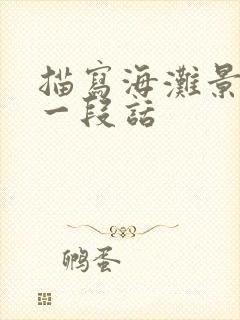 描寫海灘景
一段話
鸭蛋